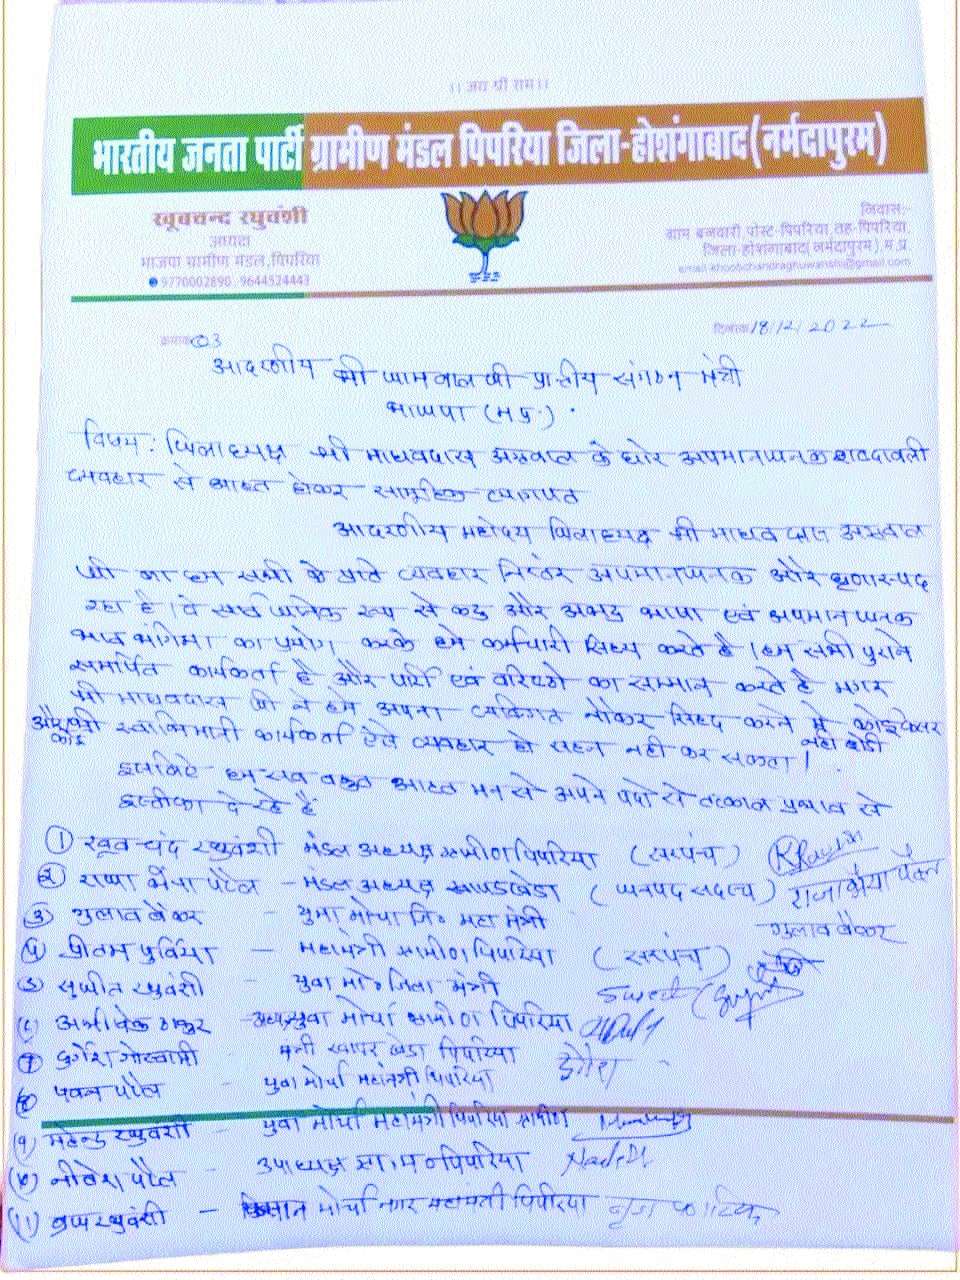 ।। जय श्री राम ।।
भारतीय जनता पार्टी ग्रामीण मंडल पिपरिया जिला-होशंगाबाद (नर्मदापुरम)
खूबचन्द रघुवंशी
अध्यक्ष
भाजपा ग्रामीण मंडल, पिपरिया
9770002890, 9644524443
निवास:-
ग्राम बनवारी, पोस्ट-पिपरिया, तह-पिपरिया,
जिला-होशंगाबाद (नर्मदापुरम) म.प्र.
email-khoobchandraghuwanshi@gmail.com
क्रमांक 03
दिनांक 18/12/2022
आदरणीय श्री जामवाल जी प्रान्तीय संगठन मंत्री
भाजपा (म.प्र.)
विषय: जिलाध्यक्ष श्री माधवदास अग्रवाल के घोर अपमानजनक शब्दावली
व्यवहार से आहत होकर सामूहिक त्यागपत
आदरणीय महोदय जिलाध्यक्ष श्री माधव दास अग्रवाल
जी का हम सभी के प्रति व्यवहार निरंतर अपमानजनक और घृणास्पद
रहा है। वे सार्वजनिक रूप से कटु और अभद्र भाषा एवं अपमानजनक
भाव भंगिमा का प्रयोग करके हमे कर्मचारी सिध्य करते है। हम सभी पुराने
समर्पित कार्यकर्ता है और पार्टी एवं वरिष्ठो का सम्मान करते है मगर
श्री माधवदास जी ने हमे अपना व्यक्तिगत नौकर सिद्द करने मे कोइ कसर
नही छोडी
और कोई भी स्वाभिमानी कार्यकर्ता ऐसे व्यवहार को सहन नही कर सकता।
इसलिए हम सब बहुत आहत मन से अपने पदो से तत्काल प्रभाव से
इस्तीफा दे रहे है
① खूबचंद रघुवंशी मंडल अध्यक्ष ग्रामीण पिपरिया (सरपंच)
② राजा भैया पटेल - मंडल अध्यक्ष खापरखेडा (जनपद सदस्य) राजा भैया पटेल
③ गुलाब बैंकर - युवा मोर्चा जि० महा मंत्री गुलाब बैंकर
④ प्रीतम पुर्विया - महामंत्री ग्रामीण पिपरिया (सरपंच)
सुजीत रघुवंशी - युवा मो० जिला मंत्री
अभिषेक ठाकुर - अध्यक्ष युवा मोर्चा ग्रामीण पिपरिया
⑦ दुर्गेश गोस्वामी - मंत्री खापरखेडा पिपरिया
⑧ पवन पटेल - युवा मोर्चा महामंत्री पिपरिया
(9) महेन्द्र रघुवंशी - युवा मोर्चा महामंत्री पिपरिया ग्रामीण
(10) नीलेश पटेल - उपाध्यक्ष ग्रा० म० पिपरिया
(11) रघुवंशी - किसान मोर्चा नगर महामंत्री पिपरिया